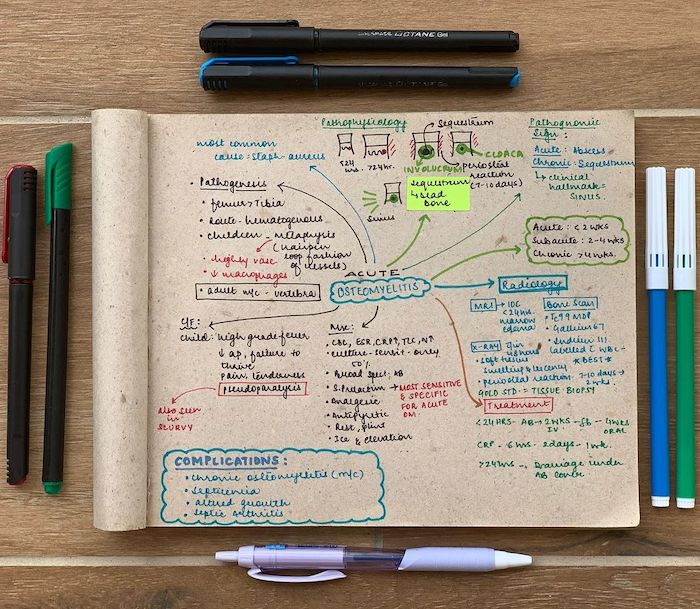 OCTANE Gel
Pathophysiology
Sequestrum
<24 hrs.
>24hr.
CLOACA
INVOLUCRUM
periosteal
reaction
(7-10 days)
Sequestrum
↳ dead
bone
Sinus
Pathognomic
Sign:
Acute: Abscess
Chronic: Sequestrum
↳ clinical
hallmark =
SINUS.
Acute: <2 wks
Subacute: 2-4 wks
Chronic >4 wks.
most common
cause: Staph aureus
• Pathogenesis
• femur > Tibia
• Route - hematogenous
• children - metaphysis
(hairpin
loop fashion
of vessels)
• highly vasc
• ↓ macrophages
• adult m/c - vertebra
ACUTE
OSTEOMYELITIS
child: high grade fever
↓ ap, failure to
thrive
pain, tenderness
pseudoparalysis
also seen
in
SCURVY
• CBC, ESR, CRP↑, TLC, N↑
• culture - sensit - only
50%
• Broad spect: AB
• Analgesic
• Antipyretic
• Rest, splint
• Ice & elevation
→ MOST SENSITIVE
& SPECIFIC
FOR ACUTE
OM.
Radiology
MRI → IOC
<24 hrs.
marrow
edema
Bone Scan
• Tc99 MDP
• Gallium 67
• Indium 111
labelled C WBC -
* BEST *
X-RAY
48 hours
• Soft tissue
swelling & lucency
• periosteal reaction - 7-10 days → 2 wks.
GOLD STD = TISSUE BIOPSY
Treatment
<24 HRS - AB → 2 wks - 4 wks
IV ORAL
CRP - 6 hrs - 2 days - 1 wk.
>24 hrs - Drainage under
AB cover
COMPLICATIONS:
• chronic osteomyelitis (m/c)
• Septicemia
• altered growth
• septic arthritis